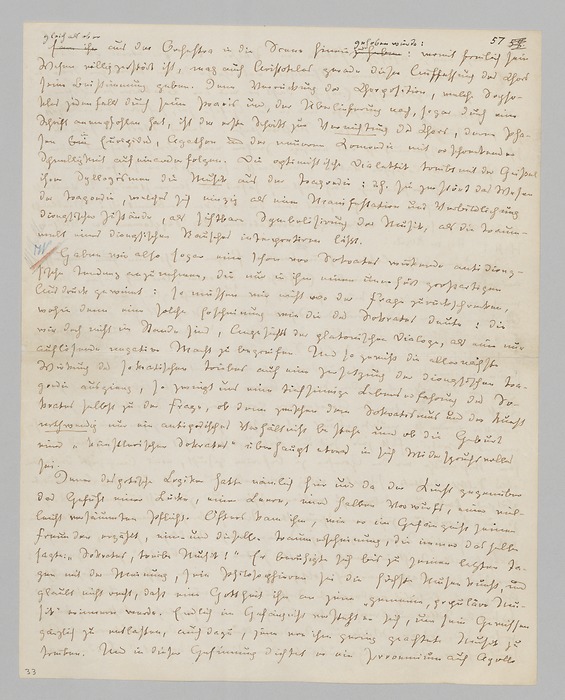 gleich als ob er gehoben würde: 57
aus der Orchestra in die Scene hinein: womit freilich sein
Wesen völlig zerstört ist, mag auch Aristoteles gerade dieser Auffassung des Chors
seine Beistimmung geben. Jene Verrückung der Chorposition, welche Sopho-
kles jedenfalls durch seine Praxis und, der Überlieferung nach, sogar durch eine
Schrift anempfohlen hat, ist der erste Schritt zur Vernichtung des Chors, deren Pha-
sen in Euripides, Agathon und der neueren Komoedie mit erschreckender
Schnelligkeit auf einander folgen. Die optimistische Dialektik treibt mit der Geissel
ihrer Syllogismen die Musik aus der Tragoedie: d.h. sie zerstört das Wesen
der Tragoedie, welches sich einzig als eine Manifestation und Verbildlichung
dionysischer Zustände, als sichtbare Symbolisirung der Musik, als die Traum-
welt eines dionysischen Rausches interpretiren lässt.
Haben wir also sogar eine schon vor Sokrates wirkende antidiony-
sische Tendenz anzunehmen, die nur in ihm einen unerhört grossartigen
Ausdruck gewinnt: so müssen wir nicht vor der Frage zurückschrecken,
wohin denn eine solche Erscheinung wie die des Sokrates deute: die
wir doch nicht im Stande sind, Angesichts der platonischen Dialoge, als eine nur
auflösende negative Macht zu begreifen. Und so gewiss die allernächste
Wirkung des sokratischen Triebes auf eine Zersetzung der dionysischen Tra-
goedie ausgieng, so zwingt uns eine tiefsinnige Lebenserfahrung des So-
krates selbst zu der Frage, ob denn zwischen dem Sokratismus und der Kunst
nothwendig nur ein antipodisches Verhältniss bestehe und ob die Geburt
eines „künstlerischen Sokrates“ überhaupt etwas in sich Widerspruchsvolles
sei.
Jener despotische Logiker hatte nämlich hier und da der Kunst gegenüber
das Gefühl einer Lücke, einer Leere, eines halben Vorwurfs, einer viel-
leicht versäumten Pflicht. Öfters kam ihm, wie er im Gefängniss seinen
Freunden erzählt, ein und dieselbe Traumerscheinung, die immer dasselbe
sagte: „Sokrates, treibe Musik!“ Er beruhigte sich bis zu seinen letzten Ta-
gen mit der Meinung, sein Philosophieren sei die höchste Musenkunst, und
glaubt nicht recht, dass eine Gottheit ihn an jene „gemeine, populäre Mu-
sik“ erinnern werde. Endlich im Gefängniss versteht er sich, um sein Gewissen
gänzlich zu entlasten, auch dazu, jene von ihm gering geachtete Musik zu
treiben. Und in dieser Gesinnung dichtet er ein Prooemium auf Apollo
33